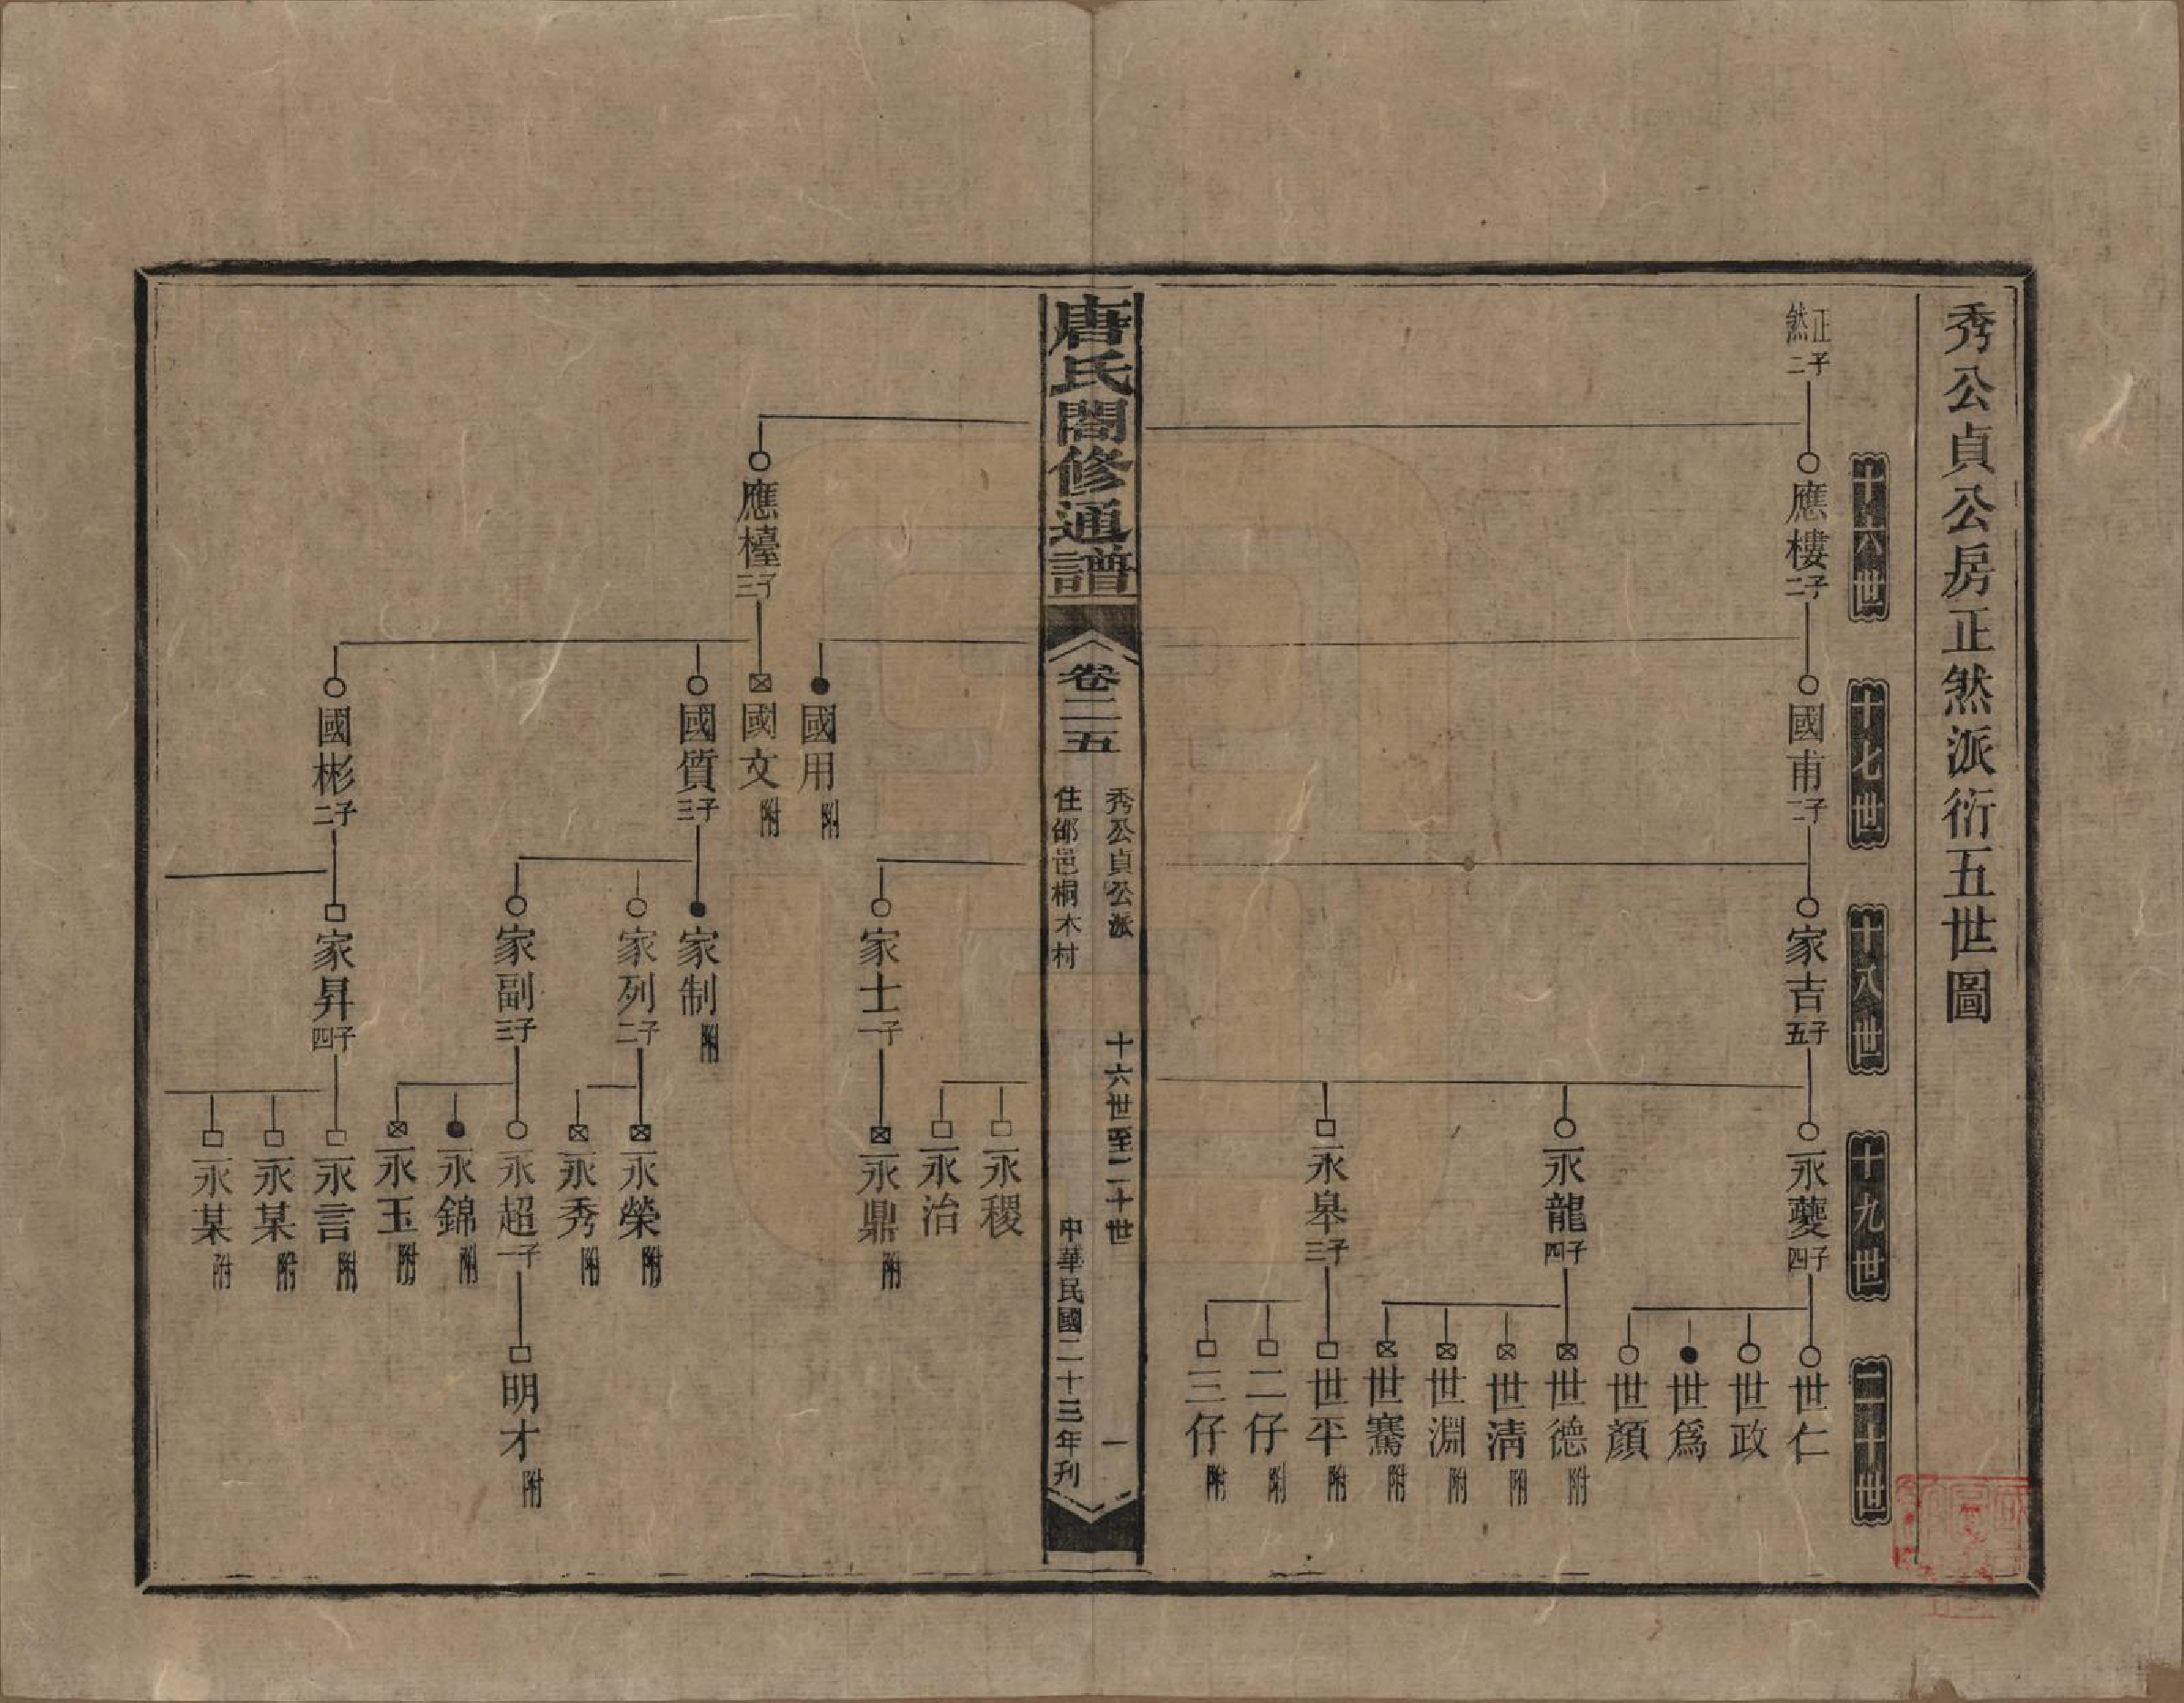 秀公貞公房正然派衍五世圖
十六世
十七世
十八世
十九世
二十世
正然二子
應樓二子
國甫二子
家吉五子
永夔四子
世仁
世政
世爲
世顏
永龍四子
世德附
世清附
世淵附
世騫附
永皋三子
世平附
二仔附
三仔附
唐氏閤修通譜
卷二五
秀公貞公派
住邵邑桐木村
十六世至二十世
一
中華民國二十三年刊
永稷
永治
家士一子
永鼎附
國用附
應檯三子
國文附
國質三子
家制附
家列二子
永榮附
永秀附
家副三子
永超一子
明才附
永錦附
永玉附
國彬二子
家昇四子
永言附
永某附
永某附